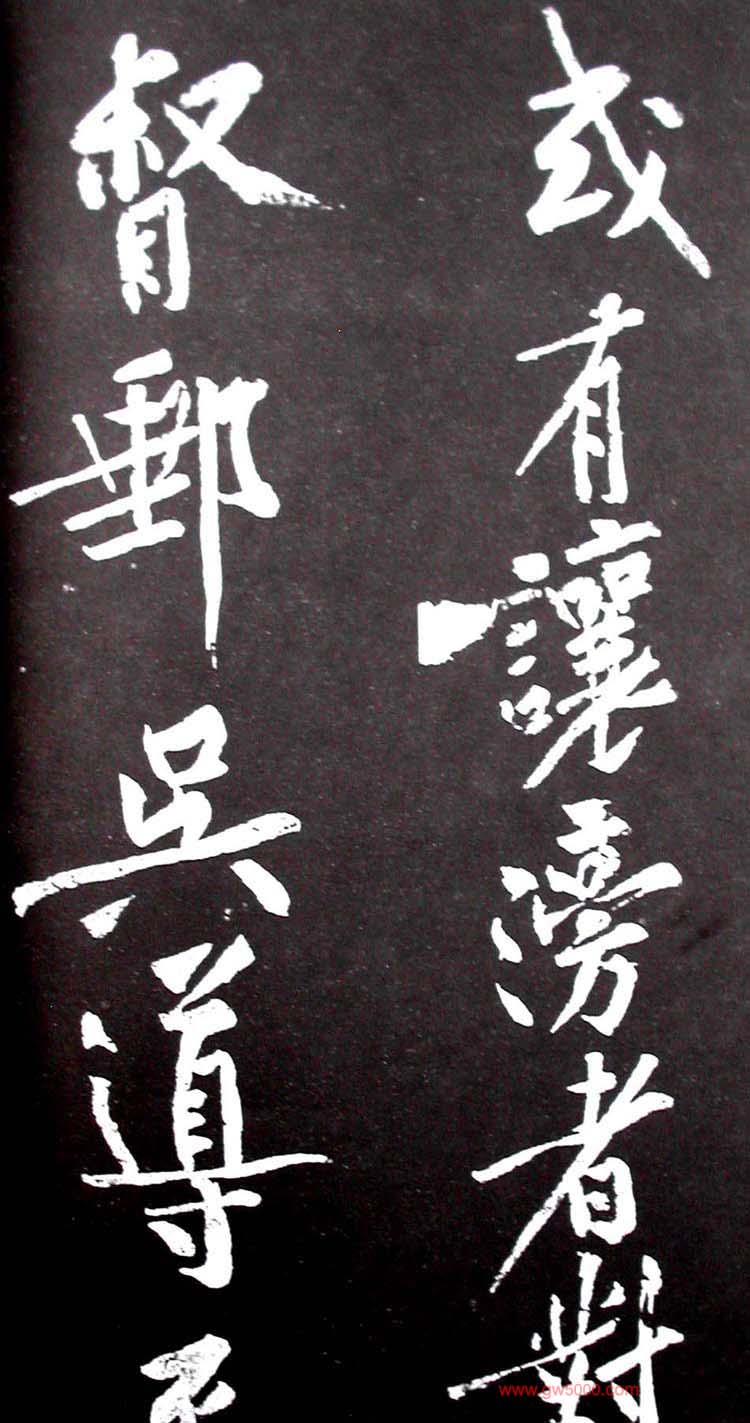 或有讓滂者對
督郵吳導
www.gw5000.com